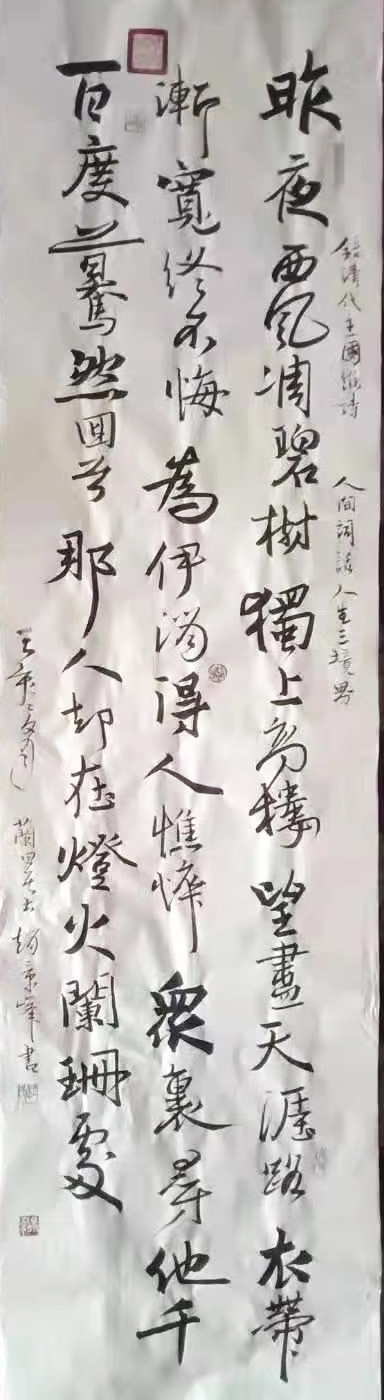 昨夜西風凋碧樹獨上高樓望盡天涯路衣帶
漸寬終不悔為伊消得人憔悴眾裏尋他千
百度驀然回首那人却在燈火闌珊處
錄清代王國維詩 人間詞話人生三境界
趙京峰書